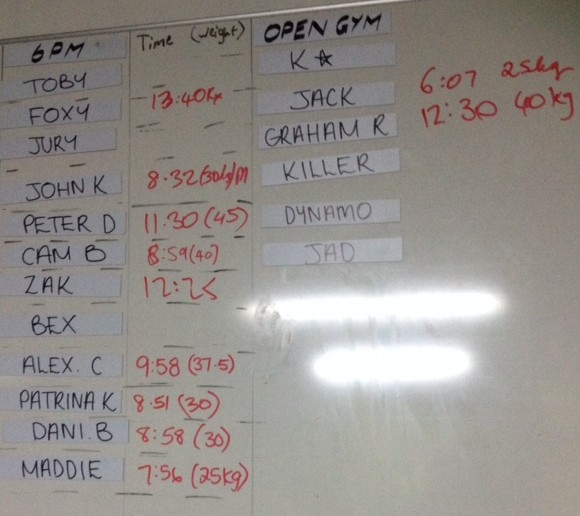 6PM Time (weight) OPEN GYM
TOBY
FOXY 13:40
JURY
JOHN K 8.32
PETER D 11.30 (45)
CAM B 8:59 (40)
ZAK 12:25
BEX
ALEX. C 9:58 (37.5)
PATRINA K 8.51 (30)
DANI.B 8:58 (30)
MADDIE 7:56 (25kg)
K ☆
JACK 6:07 25kg
GRAHAM R 12:30 40kg
KILLER
DYNAMO
JAD